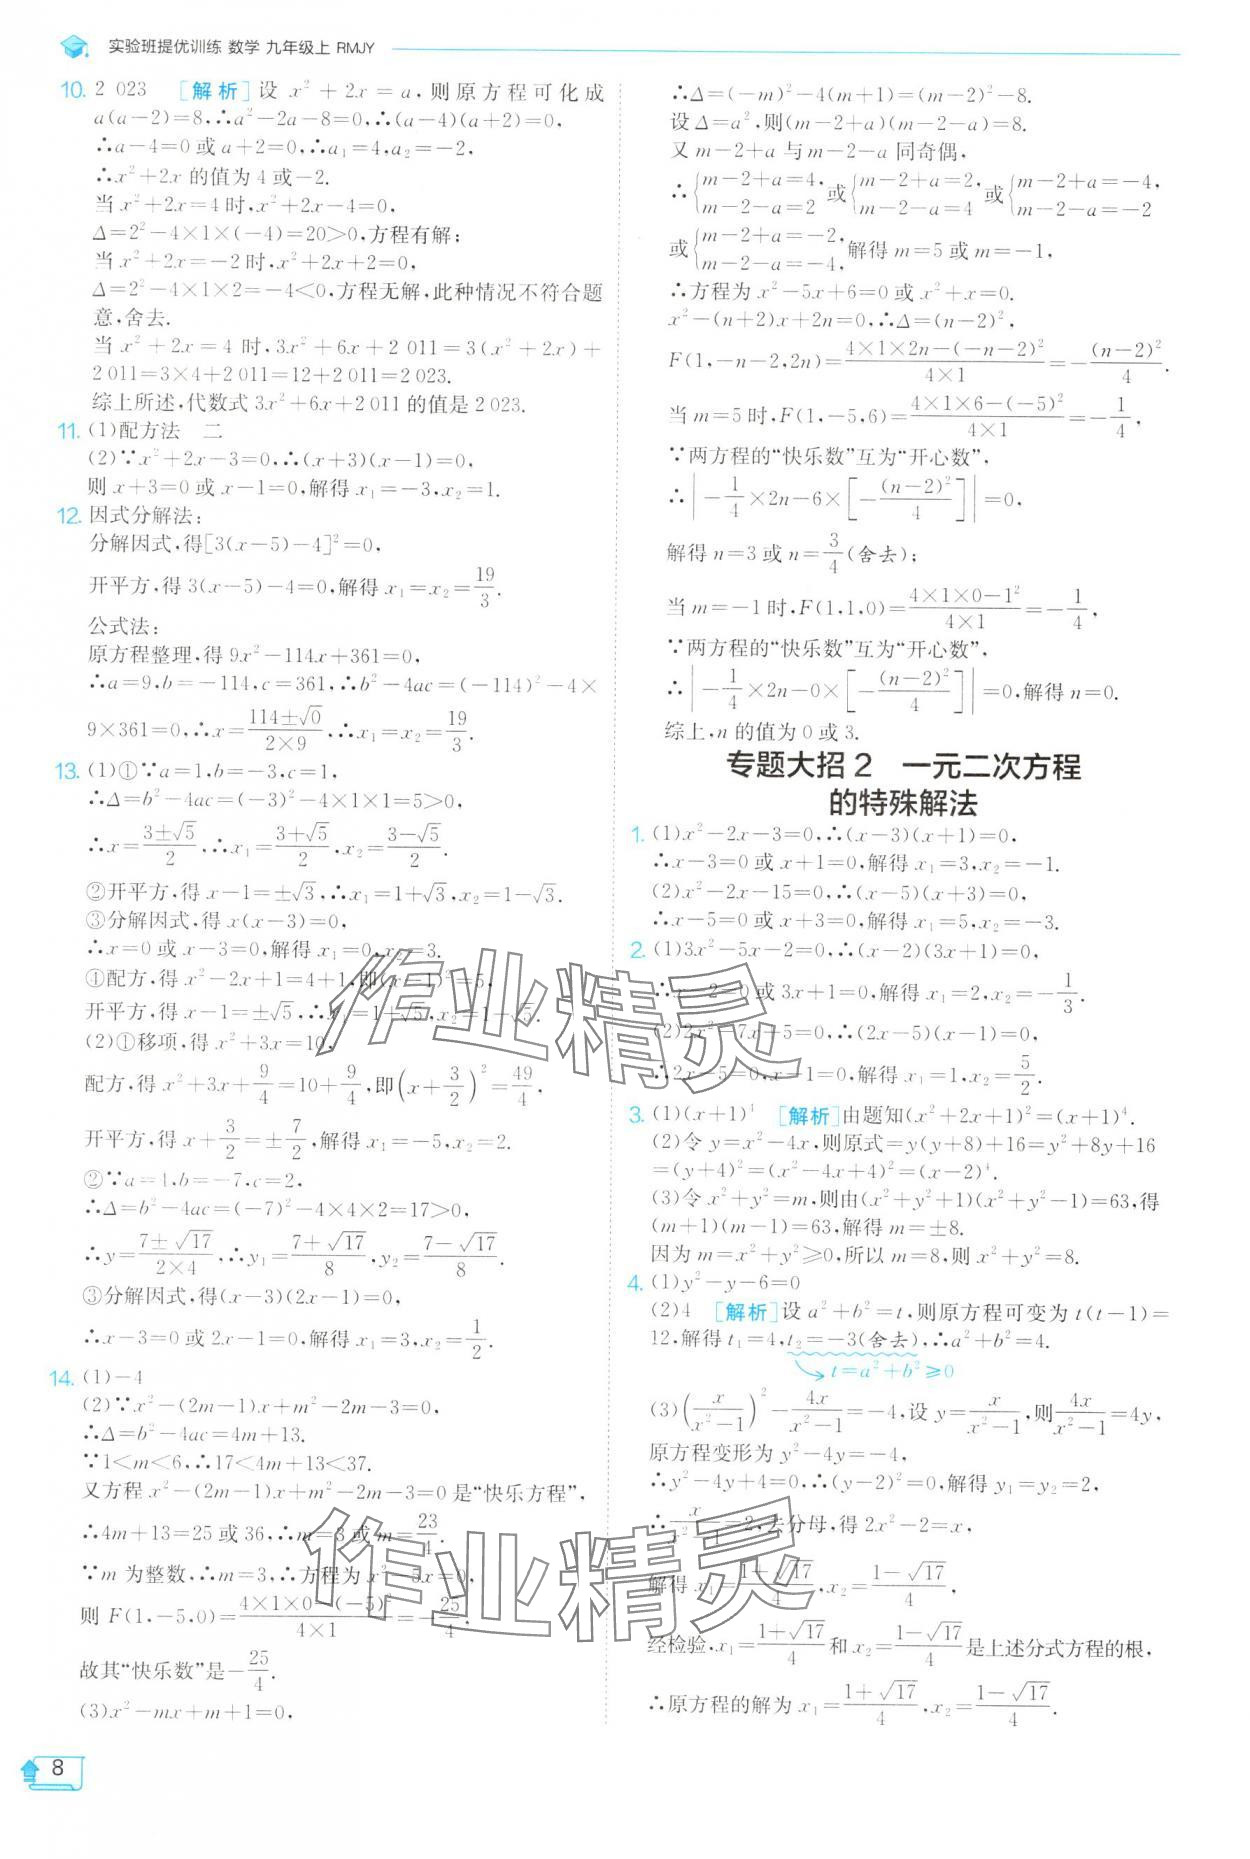 实验班提优训练 数学 九年级上 RMJY
10. 2 023 [解析]设 x²+2x=a,则原方程可化成
a(a-2)=8,∴a²-2a-8=0,∴(a-4)(a+2)=0,
∴a-4=0或a+2=0,∴a₁=4,a₂=-2,
∴x²+2x的值为4或-2.
当x²+2x=4时,x²+2x-4=0,
Δ=2²-4×1×(-4)=20>0,方程有解;
当x²+2x=-2时,x²+2x+2=0,
Δ=2²-4×1×2=-4<0,方程无解,此种情况不符合题
意,舍去.
当x²+2x=4时,3x²+6x+2 011=3(x²+2x)+
2 011=3×4+2 011=12+2 011=2 023.
综上所述,代数式3x²+6x+2 011的值是2 023.
11. (1)配方法 二
(2)∵x²+2x-3=0,∴(x+3)(x-1)=0,
则x+3=0或x-1=0,解得x₁=-3,x₂=1.
12. 因式分解法:
分解因式,得[3(x-5)-4]²=0,
开平方,得3(x-5)-4=0,解得x₁=x₂=19/3.
公式法:
原方程整理,得9x²-114x+361=0,
∴a=9,b=-114,c=361,∴b²-4ac=(-114)²-4×
9×361=0,∴x=(114±√0)/(2×9),∴x₁=x₂=19/3.
13. (1)①∵a=1,b=-3,c=1,
∴Δ=b²-4ac=(-3)²-4×1×1=5>0,
∴x=(3±√5)/2,∴x₁=(3+√5)/2,x₂=(3-√5)/2.
②开平方,得x-1=±√3,∴x₁=1+√3,x₂=1-√3.
③分解因式,得x(x-3)=0,
∴x=0或x-3=0,解得x₁=0,x₂=3.
④配方,得x²-2x+1=4+1,即(x-1)²=5,
开平方,得x-1=±√5,∴x₁=1+√5,x₂=1-√5.
(2)①移项,得x²+3x=10,
配方,得x²+3x+9/4=10+9/4,即(x+3/2)²=49/4.
开平方,得x+3/2=±7/2,解得x₁=-5,x₂=2.
②∵a=4,b=-7,c=2,
∴Δ=b²-4ac=(-7)²-4×4×2=17>0,
∴y=(7±√17)/(2×4),∴y₁=(7+√17)/8,y₂=(7-√17)/8.
③分解因式,得(x-3)(2x-1)=0,
∴x-3=0或2x-1=0,解得x₁=3,x₂=1/2.
14. (1)-4
(2)∵x²-(2m-1)x+m²-2m-3=0,
∴Δ=b²-4ac=4m+13.
∵1<m<6,∴17<4m+13<37.
又方程x²-(2m-1)x+m²-2m-3=0是“快乐方程”,
∴4m+13=25或36,∴m=3或m=23/4.
∵m为整数,∴m=3,∴方程为x²-5x=0,
则F(1,-5,0)=(4×1×0-(-5)²)/(4×1)=-25/4.
故其“快乐数”是-25/4.
(3)x²-mx+m+1=0,
8
∴Δ=(-m)²-4(m+1)=(m-2)²-8.
设Δ=a²,则(m-2+a)(m-2-a)=8.
又m-2+a与m-2-a同奇偶,
∴{m-2+a=4, m-2-a=2 或{m-2+a=2, m-2-a=4 或{m-2+a=-4, m-2-a=-2
或{m-2+a=-2, m-2-a=-4, 解得m=5或m=-1,
∴方程为x²-5x+6=0或x²+x=0.
x²-(n+2)x+2n=0,∴Δ=(n-2)²,
F(1,-n-2,2n)=(4×1×2n-(-n-2)²)/(4×1)=-(n-2)²/4.
当m=5时,F(1,-5,6)=(4×1×6-(-5)²)/(4×1)=-1/4,
∵两方程的“快乐数”互为“开心数”,
∴|-1/4×2n-6×[-(n-2)²/4]|=0,
解得n=3或n=3/4(舍去);
当m=-1时,F(1,1,0)=(4×1×0-1²)/(4×1)=-1/4,
∵两方程的“快乐数”互为“开心数”,
∴|-1/4×2n-0×[-(n-2)²/4]|=0,解得n=0.
综上,n的值为0或3.
专题大招2 一元二次方程
的特殊解法
1. (1)x²-2x-3=0,∴(x-3)(x+1)=0,
∴x-3=0或x+1=0,解得x₁=3,x₂=-1.
(2)x²-2x-15=0,∴(x-5)(x+3)=0,
∴x-5=0或x+3=0,解得x₁=5,x₂=-3.
2. (1)3x²-5x-2=0,∴(x-2)(3x+1)=0,
∴x-2=0或3x+1=0,解得x₁=2,x₂=-1/3.
(2)2x²-7x+5=0,∴(2x-5)(x-1)=0,
∴2x-5=0,x-1=0,解得x₁=1,x₂=5/2.
3. (1)(x+1)⁴ [解析]由题知(x²+2x+1)²=(x+1)⁴.
(2)令y=x²-4x,则原式=y(y+8)+16=y²+8y+16
=(y+4)²=(x²-4x+4)²=(x-2)⁴.
(3)令x²+y²=m,则由(x²+y²+1)(x²+y²-1)=63,得
(m+1)(m-1)=63,解得m=±8.
因为m=x²+y²≥0,所以m=8,则x²+y²=8.
4. (1)y²-y-6=0
(2)4 [解析]设a²+b²=t,则原方程可变为t(t-1)=
12,解得t₁=4,t₂=-3(舍去),∴a²+b²=4.
t=a²+b²≥0
(3)(x/(x²-1))²-4x/(x²-1)=-4,设y=x/(x²-1),则4x/(x²-1)=4y,
原方程变形为y²-4y=-4,
∴y²-4y+4=0,∴(y-2)²=0,解得y₁=y₂=2,
∴x/(x²-1)=2,去分母,得2x²-2=x,
解得x₁=(1+√17)/4,x₂=(1-√17)/4,
经检验,x₁=(1+√17)/4和x₂=(1-√17)/4是上述分式方程的根,
∴原方程的解为x₁=(1+√17)/4,x₂=(1-√17)/4.
作业精灵
作业精灵